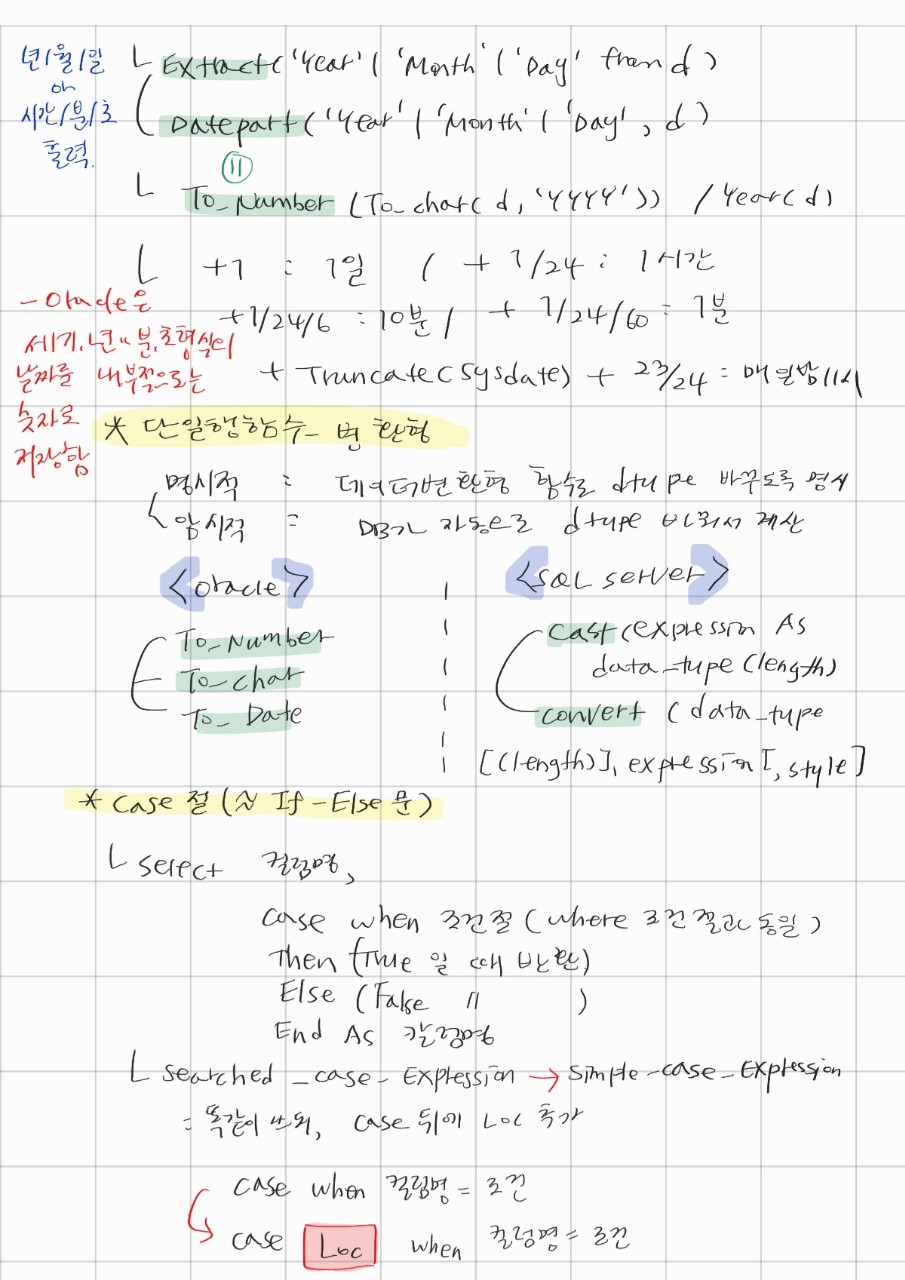 년/월/일
or
시간/분/초
출력.
ㄴ Extract('Year' / 'Month' / 'Day' from d)
Datepart('Year' / 'Month' / 'Day', d)
=
ㄴ To_Number (To_char(d, 'YYYY')) / Year(d)
ㄴ +1 : 1일 / + 1/24 : 1시간
+1/24/6 : 10분 / + 1/24/60 : 1분
+ Truncate(sysdate) + 23/24 : 매일밤 11시
- Oracle은
세기, 년 〃 분, 초 형식의
날짜를 내부적으로는
숫자로
저장함
* 단일행함수_ 변환형
명시적 : 데이터변환형 함수로 dtype 바꾸도록 명시
암시적 : DB가 자동으로 dtype 바꿔서 계산
<oracle>
To_Number
To_char
To_Date
<SQL server>
Cast(expression As
data_type(length)
convert (data_type
[(length)], expression[, style]
* Case 절 (∽ If-Else 문)
ㄴ select 컬럼명,
Case when 조건절 (where 조건절과 동일)
Then (True 일 때 반환)
Else (False 〃 )
End As 칼럼명
ㄴ searched_case_Expression → simple_case_Expression
= 똑같이 쓰되, case 뒤에 Loc 추가
case when 컬럼명 = 조건
case Loc when 컬럼명 = 조건